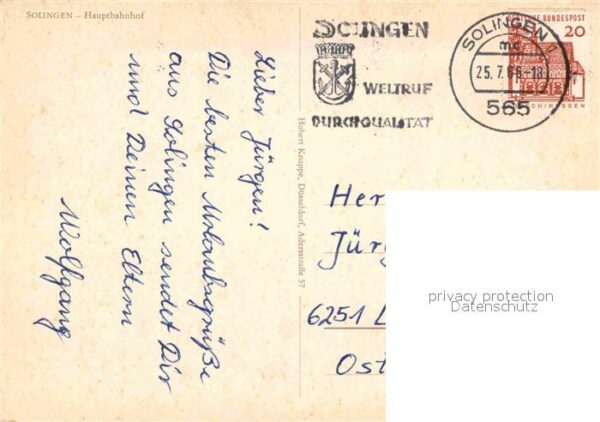 SOLINGEN – Hauptbahnhof
Lieber Jürgen!
Die besten Urlaubsgrüße
aus Solingen sendet Dir
und Deinen Eltern
Wolfgang
Hubert Knappe, Düsseldorf, Adersstraße 57
SOLINGEN
WELTRUF
DURCH QUALITÄT
SOLINGEN 1
25.7.66-18
565
DEUTSCHE BUNDESPOST
20
LORSCH/HESSEN
Her
Jürg
6251 L
Ost
privacy protection
Datenschutz